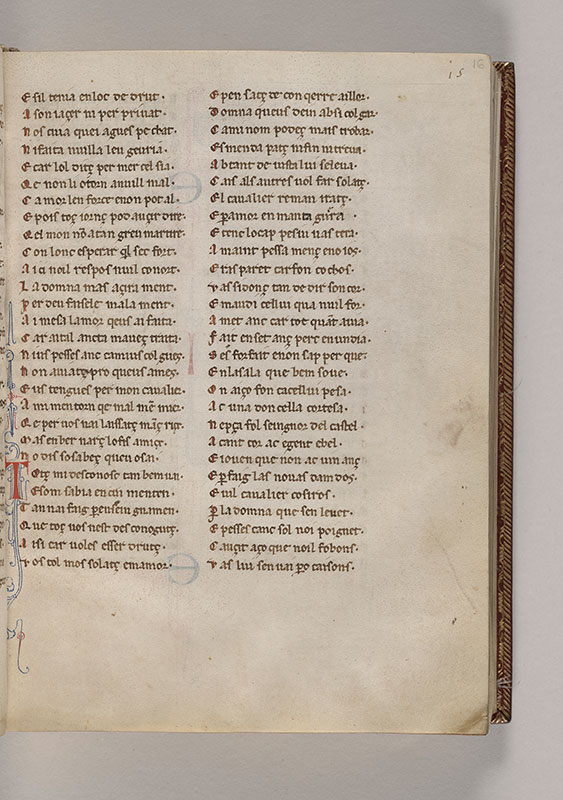 15
16
E sil tenia en loc de drut.
A son iaçer ni per priuat.
N os cuia quei agues pechat.
N i faita nuilla leugeuria.
E car lol ditç per mercel sia.
Qe non li o torn a nuill mal.
C amor len force e non pot al.
E pois toç iornç pod auçir dire.
Qel mon nõ a tan gren martire.
C on lonc esperar ql sec fort.
A ici noil respos nuil conort.
L a domna mas açira ment.
P er deu faisele mala ment.
A i mesa lamor qeus ai faita.
C ar aital anc ta maueç traita
N ius pesses anc camius colgues.
N on auia tç pro queus ames.
E us tengues per mon caualier.
A mi men torn qe mal mẽ mier.
Q e per uos uai laissatç mãç ric.
M as en ber narç lo fis amicç.
N o dis sos a beç quen osa.
T otç mi desconosc tan bem uai.
E som sabia en cui menten.
T an nai faig pensem gnamen.
Que toç uos nest desconogutç.
A isi car uoles esser drutç.
V os tol mos solatç em amor.
E pensatç de conqerre aillor.
D omna queus dein ab si colgar.
C ami nom podeç mais trobar.
E smenda patç ni fin ni treua.
A b tant de uista lui se leua.
C ar als autres uol far solatç.
E l caualier reman iratç.
E p̃ amor en manta guĩra
E tenc lo cap pesiu uas terra.
A maint pessamenç enoios.
E ras paret car fon cochos.
V as si donç tan de dir son cor.
E maudi cellui qua nuil for.
A met anc car tot quãt auia.
F ait en set anç perc en un dia.
S es forfait e non sap per que.
E nla sala que bem soue.
O n aiço fon ca cellui pesa.
A c una doncella cortesa.
N epça fol seingnor del castel.
A cant cor ac e gent e bel.
E iouen que non ac um anç
E p̃ faig las nouas dam dos.
E uil caualier cosiros.
P̃ la domna que sen leuet.
E pesses canc sol noi poignet.
C auçit aço que noil fo bons.
V as lui sen uai p̃o caisons.